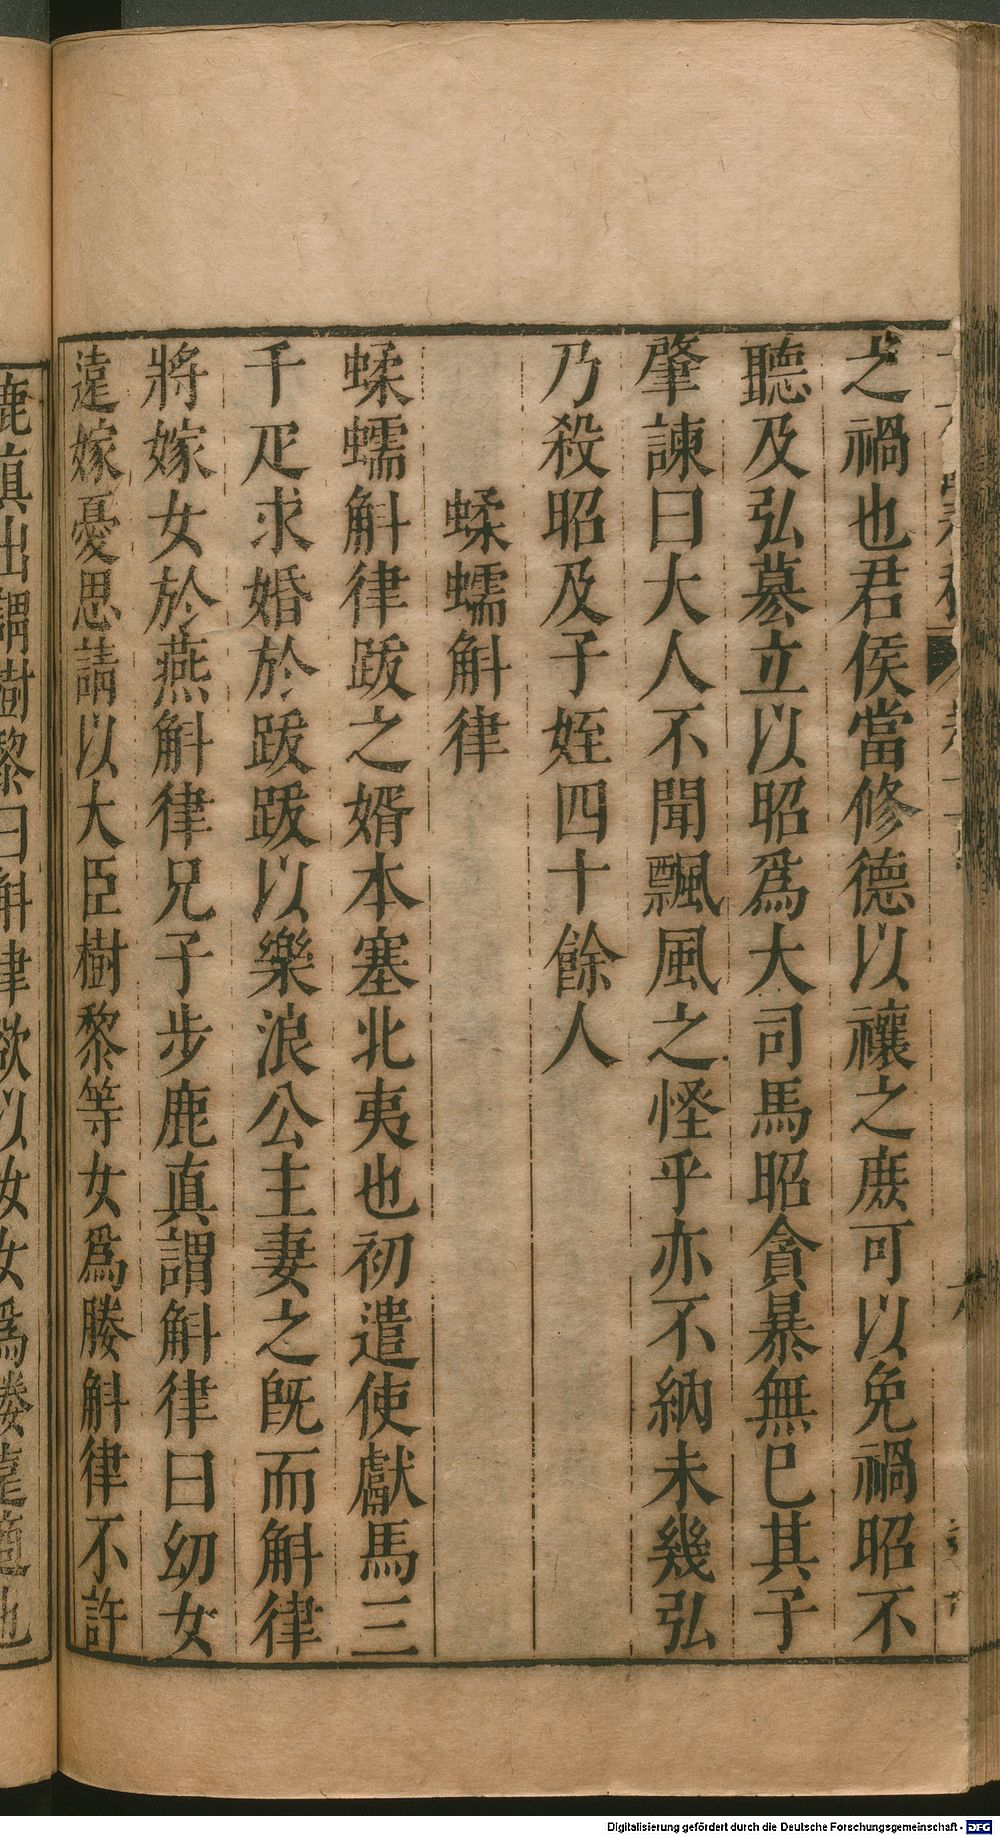 之禍也君侯當修德以禳之庶可以免禍昭不
聽及弘墓立以昭爲大司馬昭貪暴無已其子
肇諫曰大人不聞飄風之怪乎亦不納未幾弘
乃殺昭及子姪四十餘人
蝚蠕斛律
蝚蠕斛律跋之婿本塞北夷也初遣使獻馬三
千疋求婚於跋跋以樂浪公主妻之旣而斛律
將嫁女於燕斛律兄子步鹿真謂斛律曰幼女
遠嫁憂思請以大臣樹黎等女爲媵斛律不許
鹿真出謂樹黎曰斛律欲以汝女爲媵遠適他
Digitalisierung gefördert durch die Deutsche Forschungsgemeinschaft - DFG